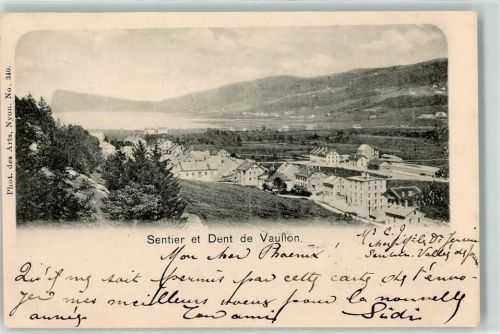 Phot. des Arts, Nyon. No. 340.
Sentier et Dent de Vaulion.
Sentier, Vallée de
Mon cher Phoenix!
Qu'il me soit permis par cette carte de t'envo-
yer mes meilleurs voeux pour la nouvelle
année
Ton ami